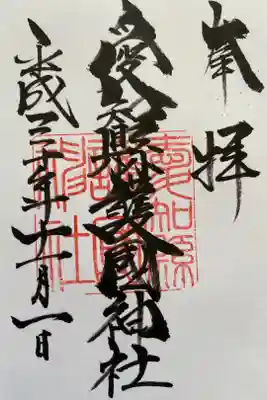 奉拝
愛知縣護國神社
平成三十年十一月一日
愛知縣護國神社